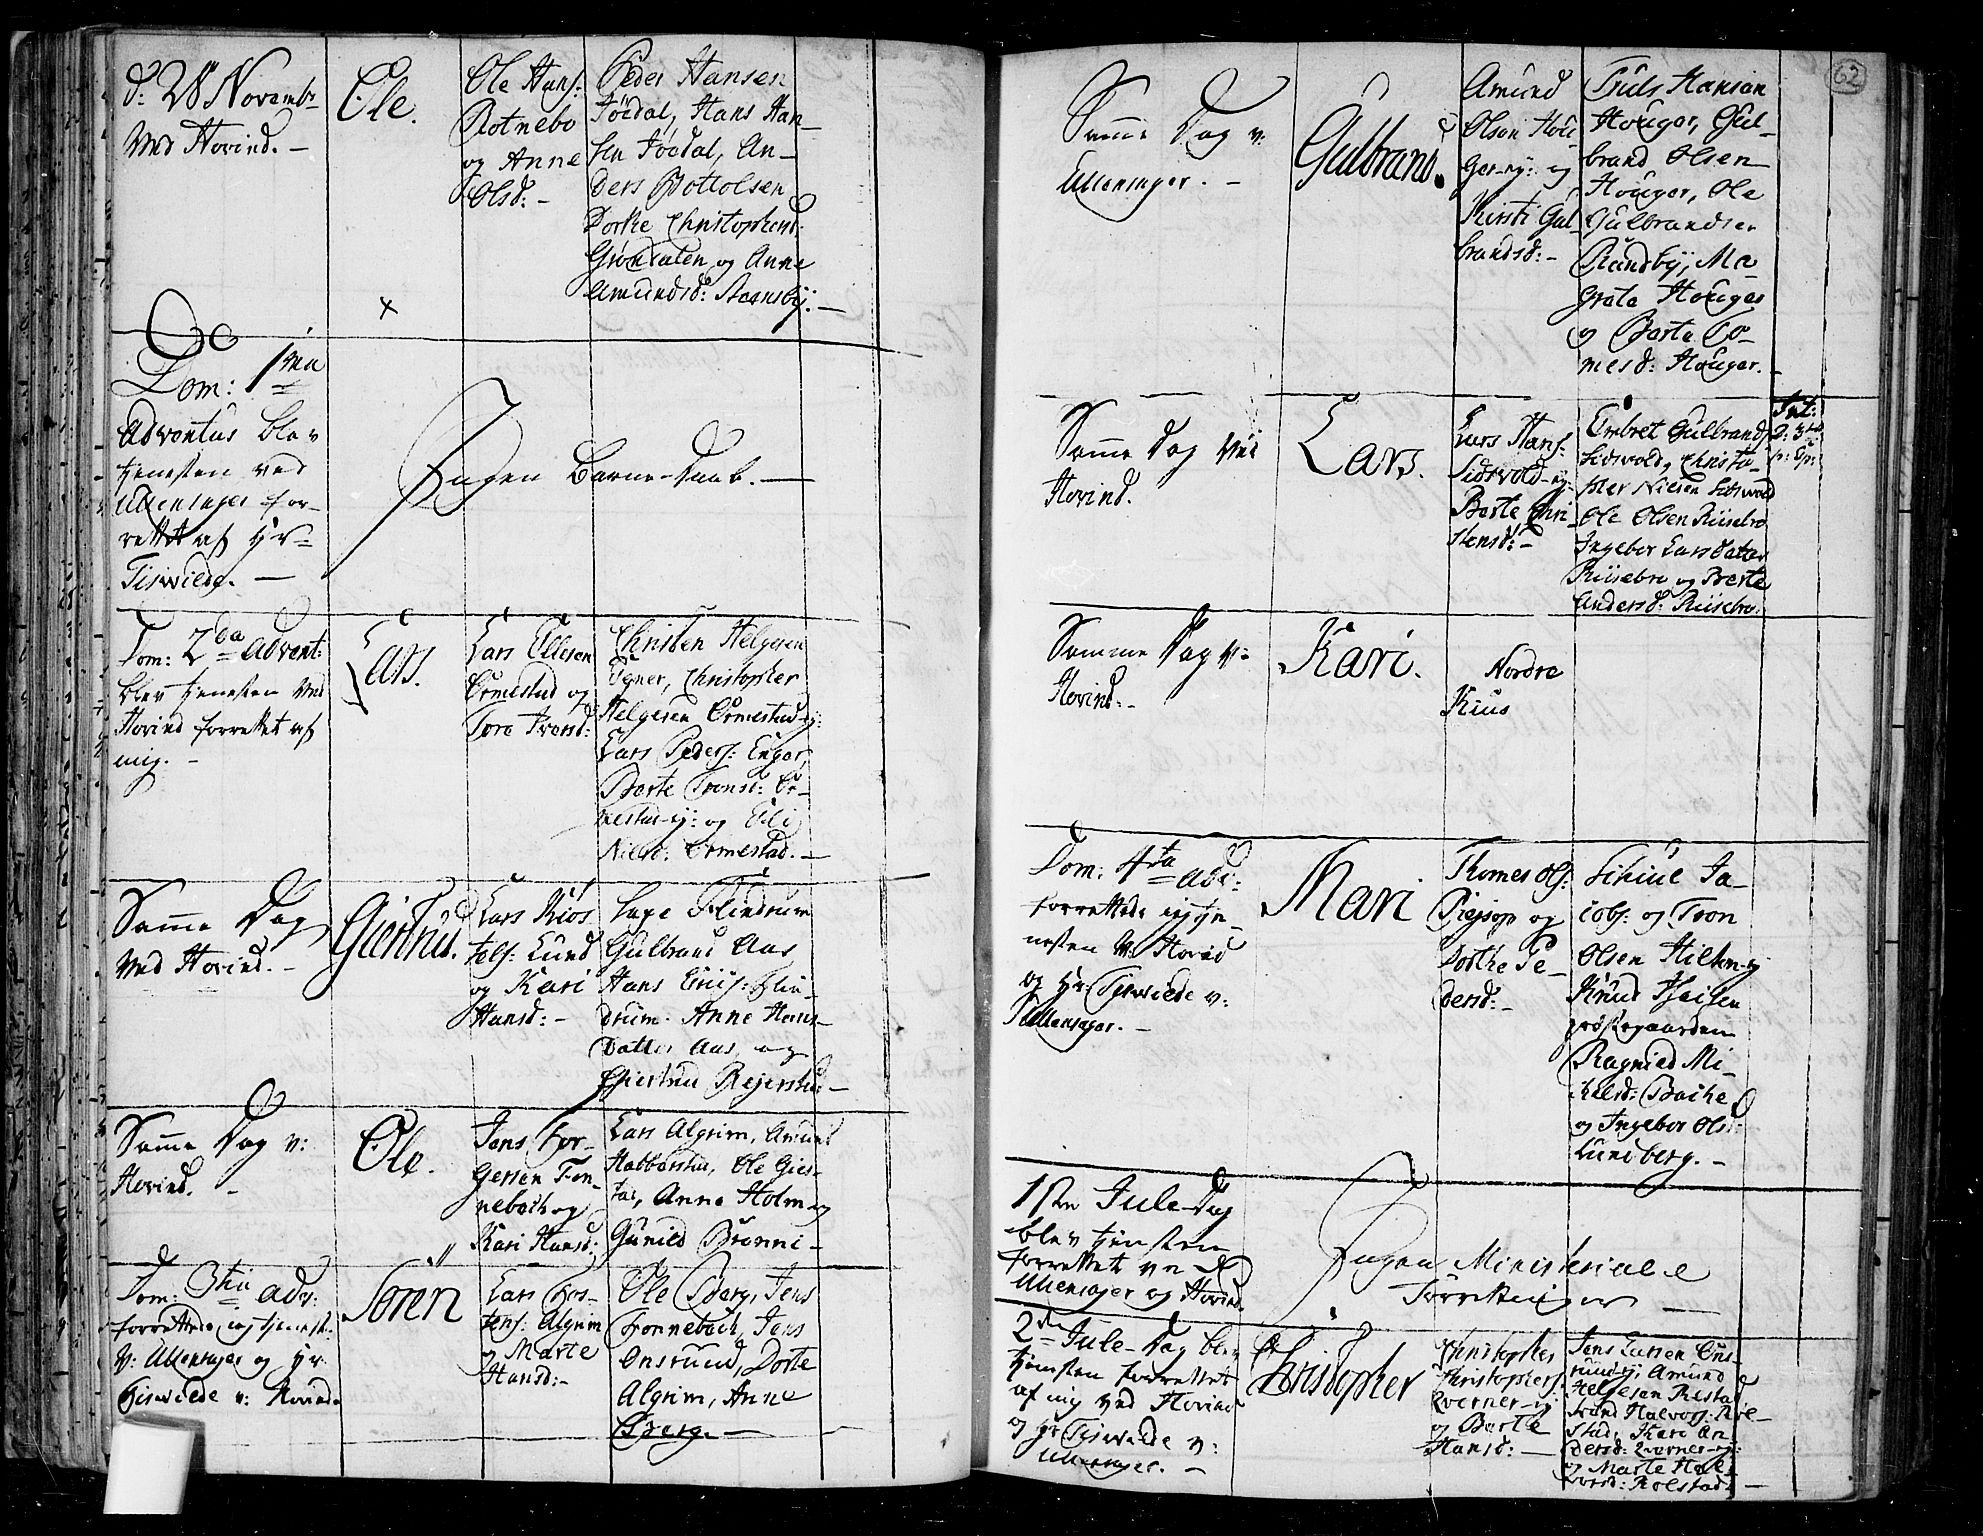 d: 28 Novembr
Ved Hovind. —
Ole.
Ole Hans:
Rotnebo
og Anne
Olsd: -
Peder Hansen
Jördal, Hans Han-
sen Jördal, An-
ders Bottolsen
Dorthe Christophersd:
Grønvalen og Anne
Amundsd:
x
Dom: 1ma
Adventus blev
tjenesten ved
Ullensager for-
rettet af Hr=
Tisvilde. —
Ingen Barne-Daab. —
Dom: 2da Advent:
blev tjenesten ved
Hovind forrettet af
mig. -
Lars.
Lars Ellesen
Ormestad og
Tore Iversd:
Christen Helgesen
Ogner, Christopher
Helgesen Ormestad-ej:
Lars Peders: Enger,
Berte Tronsd: Or-
mestad-ej: og Eli
Nielsd: Ormestad. —
Samme Dag
Ved Hovind. -
Giertrud.
Lars Kios
tofs: Lund
og Kari
Hansd: -
Flindrum
Gulbrand Aas
Hans Eriks: Flin-
drum. Anne Hans-
datter Aas, og
Giertrud Rejerstad —
Samme Dag v:
Hovind. -
Ole.
Jens Jør-
gersen Fon-
nebech og
Kari Hansd:
Lars Algrim, Amund
Habberstad, Ole Gies-
tad, Anne Holm og
Gunild Brønni-
Dom: 3tii Adv:
forrettede jeg tjenest:
v: Ullensager og Hr
Tisvilde v: Hovind.
Sören
Lars Tos-
tens: Algrim
og Marte
Hansd: -
Ole Berg, Jens
Fonnebech, Jens
Onsrud, Dorte
Algrim, Anne
Berg. —
62
Samme Dag v:
Ullensager. —
Gulbrand.
Amund
Olsen Hou-
ger-ej: og
Kirsti Gul-
brandsd: -
Truls Hansen
Houger, Gul-
brand Olsen
Houger, Ole
Gulbrandsen
Randbÿ, Ma-
grete Houger
og Berte To-
mesd: Houger. -
Samme Dag ved
Hovind.
Lars.
Lars Hans:
Eidsvold-ej:
Berte Chri-
stensd: -
Embret Gulbrands:
Eidsvold, Christo-
pher Nielsen Eidsvold
Ole Olsen Riisebro
Ingebor Larsdatter
Riisebro og Berte
Andersd: Riisebro.
Int:
Samme Dag v:
Hovind. -
Kari.
Nordre
Kius
Dom: 4ta Adv:
forrettede jeg tje-
nesten v: Hovind
og Hr: Tisvilde v:
Ullensager. —
Mari
Thomes Ols:
og
Dorthe Pe-
dersd: -
Ja-
cobs: og Tron
Olsen Hilton-ej
Knud
præstegaarden
Ragnild Mi-
kelsd: Bache
og Ingebor Olsd:
Lundberg. —
1ste Jule-Dag
blev tjenesten
forrettet ved
Ullensager og Hovind
Ingen Ministerialle
Forretninger —
2den Jule-Dag blev
tjenesten forrettet
af mig ved Hovind
og Hr Tisvilde v:
Ullensager. —
Christopher
Christopher
Christophers:
Qverner-ej
og Berte
Hansd: —
Jens Larsen Ons-
rud-ej, Amund
Helgesen
Halvors: Røl-
stad, Kari An-
dersd: Qverner-ej:
og Marte Hal-
vorsd: Rolstad —